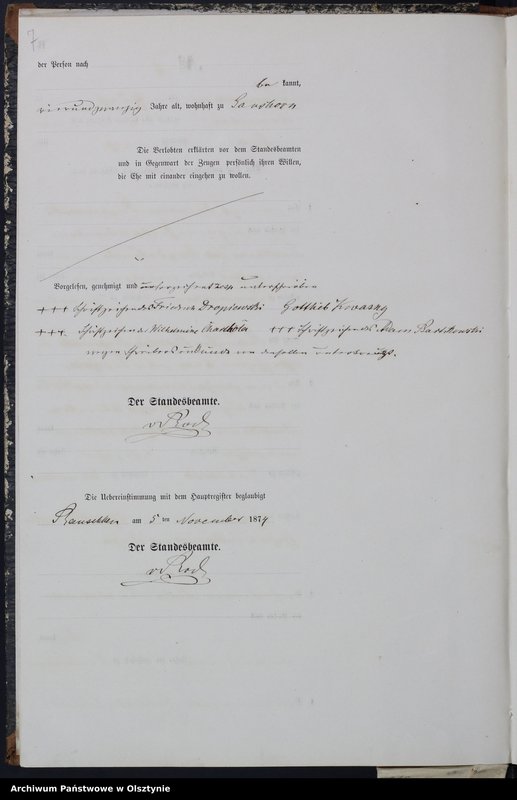 7
der Person nach
be kannt,
vierundzwanzig Jahre alt, wohnhaft zu
Die Verlobten erklärten vor dem Standesbeamten
und in Gegenwart der Zeugen persönlich ihren Willen,
die Ehe mit einander eingehen zu wollen.
Vorgelesen, genehmigt und unterschrieben
+++ Handzeichen des Friedrich Dropiewski Gottlieb
+++ Wilhelmine +++ des Adam
wegen Schreibensunkunde von denselben unterkreuzt.
Der Standesbeamte.
v Rod
Die Uebereinstimmung mit dem Hauptregister beglaubigt
am 5 ten November 1874
Der Standesbeamte.
v Rod
Archiwum Państwowe w Olsztynie